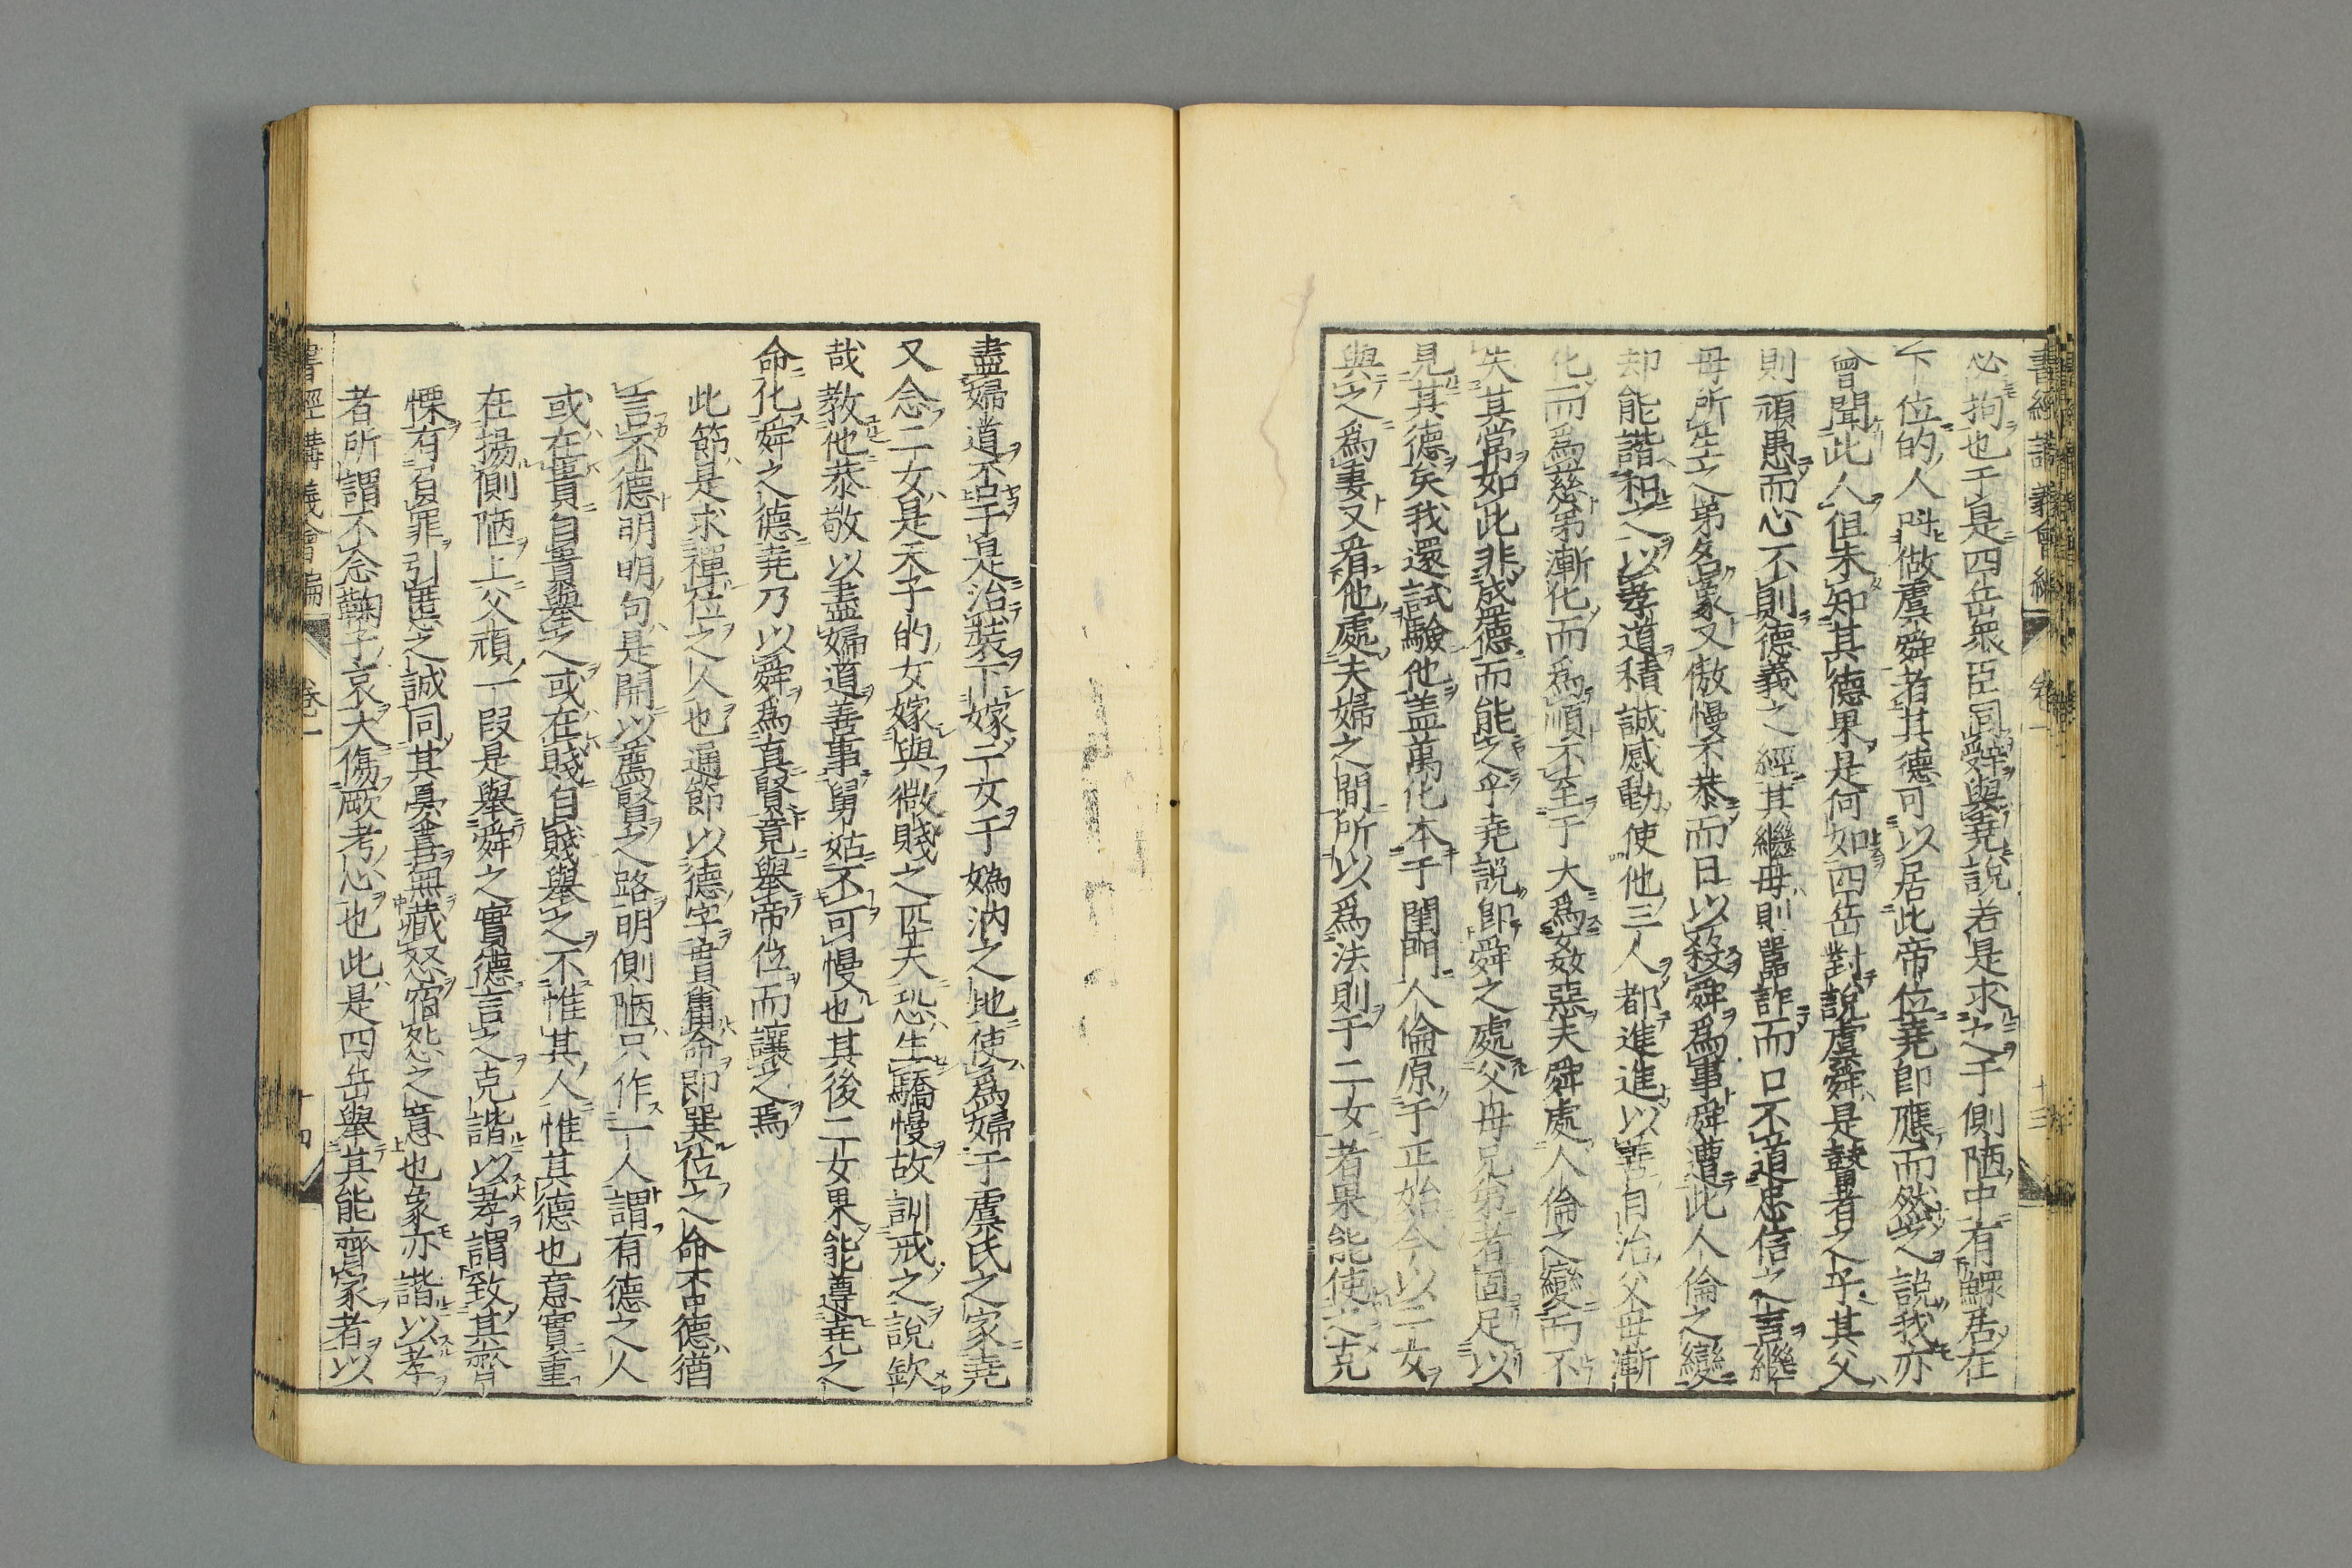 書經講義會編 卷一 十三
必拘也于是四岳衆臣同辭與堯說若是求之于側陋中有鰥居在
下位的人呌做虞舜者其德可以居此帝位堯卽應而然之說我亦
曾聞此人但未知其德果是何如四岳對說虞舜是瞽者之子其父
則頑愚而心不則德義之經其繼母則嚚詐而口不道忠信之言繼
母所生之弟名象又傲慢不恭而日以殺舜爲事舜遭此人倫之變
却能諧和之以孝道積誠感動使他三人都進進以善自治父母漸
化而爲慈弟漸化而爲順不至于大爲姦惡夫舜處人倫之變而不
失其常如此非成德而能之乎堯說卽舜之處父母兄弟者固足以
見其德矣我還試驗他盖萬化本于閨門人倫原于正始今以二女
與之爲妻又看他處夫婦之間所以爲法則于二女者果能使之克
盡婦道否于是治裝下嫁二女于嬀汭之地使爲婦于虞氏之家堯
又念二女是天子的女嫁與微賤之匹夫恐生驕慢故訓戒之說欽
哉教他恭敬以盡婦道善事舅姑不可慢也其後二女果能遵堯之
命化舜之德堯乃以舜爲真賢竟舉帝位而讓之焉
此節是求禪位之人也通節以德字貫庸命卽巽位之命否德猶
言不德明明句是開以薦賢之路明側陋只作一人謂有德之人
或在貴自貴舉之或在賤自賤舉之不惟其人惟其德也意實重
在揚側陋上父頑一段是舉舜之實德言之克諧以孝謂致其齊
慄有負罪引慝之誠同其憂喜無藏怒宿怨之意也象亦諧以孝
者所謂不念鞠子哀大傷厥考心也此是四岳舉其能齊家者以
書經講義會編 卷一 十四